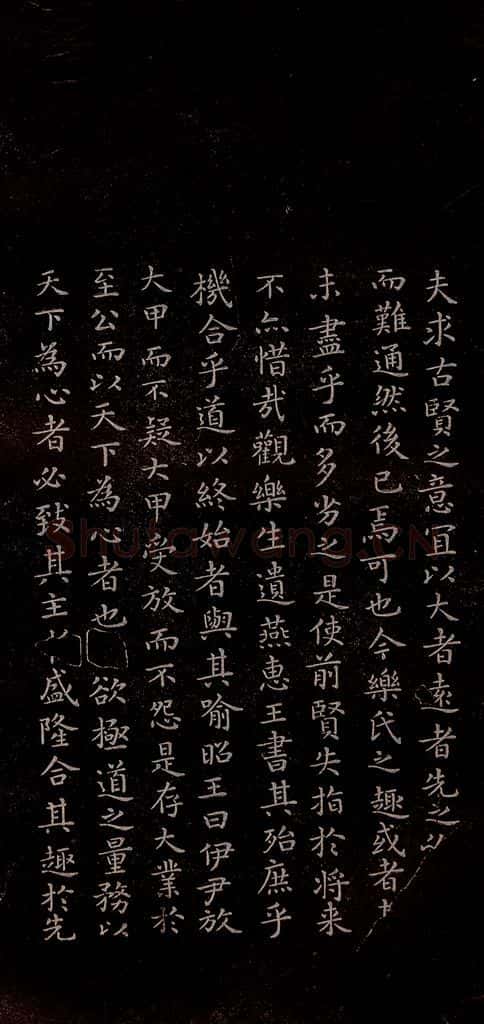 夫求古賢之意宜以大者遠者先之
而難通然後已焉可也今樂氏之趣或者
未盡乎而多劣之是使前賢失指於將来
不亦惜哉觀樂生遺燕惠王書其殆庶乎
機合乎道以終始者與其喻昭王曰伊尹放
大甲而不疑大甲受放而不怨是存大業於
至公而以天下為心者也欲極道之量務以
天下為心者必致其主於盛隆合其趣於先
Shufawang.CN